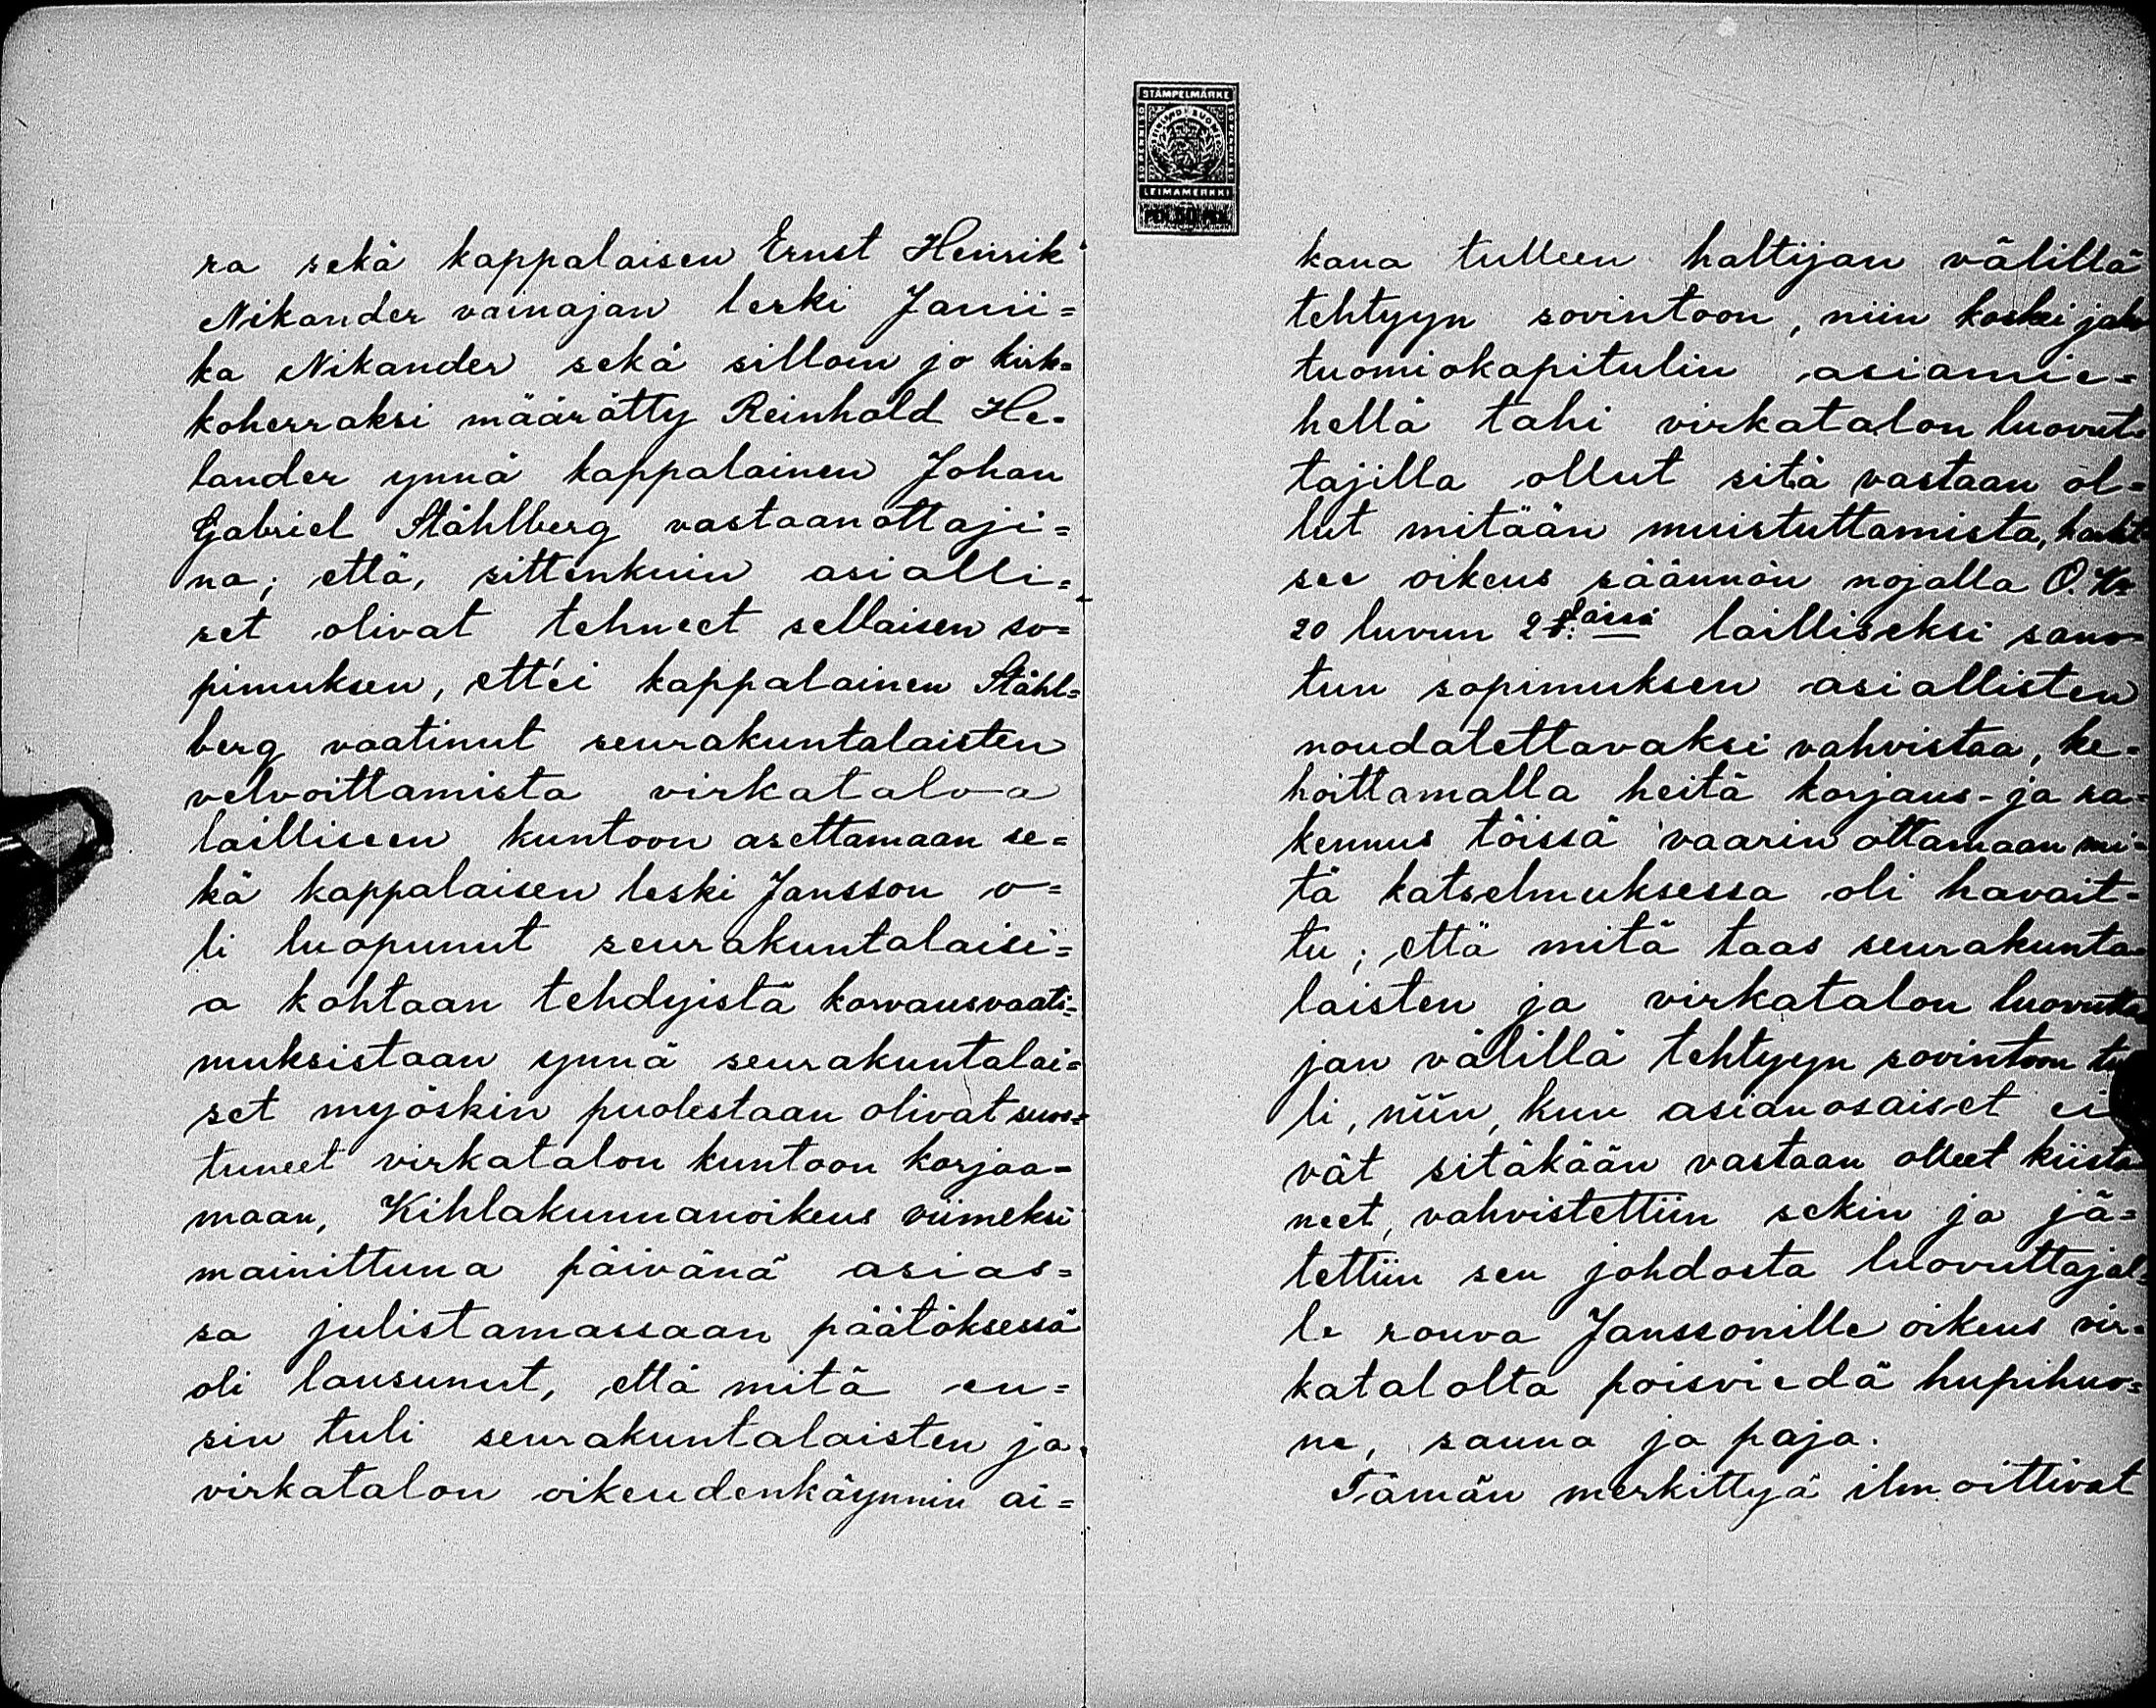 ra sekä kappalaisen Ernst Henrik
Nikander vainajan leski Janni=
ka Nikander sekä silloin jo kirk=
koherraksi määrätty Reinhold He=
lander ynnä kappalainen Johan
Gabriel Ståhlberg vastaanottaji=
na; että, sittenkuin asialli=
set olivat tehneet sellaisen so=
pimuksen, ett'ei kappalainen Ståhl=
berg vaatinut seurakuntalaisten
velvoittamista virkataloa
lailliseen kuntoon asettamaan se=
kä kappalaisen leski Jansson o=
li luopunut seurakuntalaisi=
a kohtaan tehdyistä korvausvaati=
muksistaan ynnä seurakuntalai=
set myöskin puolestaan olivat suos=
tuneet virkatalon kuntoon korjaa=
maan, Kihlakunnanoikeus viimeksi
mainittuna päivänä asias=
sa julistamassaan päätöksessä
oli lausunut, että mitä en=
sin tuli seurakuntalaisten ja
virkatalon oikeudenkäynnin ai=
STÄMPELMÄRKE
FINLAND SUOMI
LEIMAMERKKI
kana tulleen haltijan välillä
tehtyyn sovintoon, niin koska ja
tuomiokapitulin asiamie=
hellä tahi virkatalon luovut=
tajilla ollut sitä vastaan ol=
lut mitään muistuttamista, harkit=
see oikeus säännön nojalla O.K.
20 luvun 2 §:ässä lailliseksi sano=
tun sopimuksen asiallisten
noudatettavaksi vahvistaa, ke=
hoittamalla heitä korjaus- ja ra=
kennus töissä vaarin ottamaan mi=
tä katselmuksessa oli havait=
tu; että mitä taas seurakunta=
laisten ja virkatalon luovutta=
jan välillä tehtyyn sovintoon tu
li, niin, kun asianosaiset ei
vät sitäkään vastaan olleet kiistä
neet, vahvistettiin sekin ja jä=
tettiin sen johdosta luovuttajal=
le rouva Janssonille oikeus vir=
katalolta poisviedä hupihuo=
ne, sauna ja paja.
Tämän merkittyä ilmoittivat